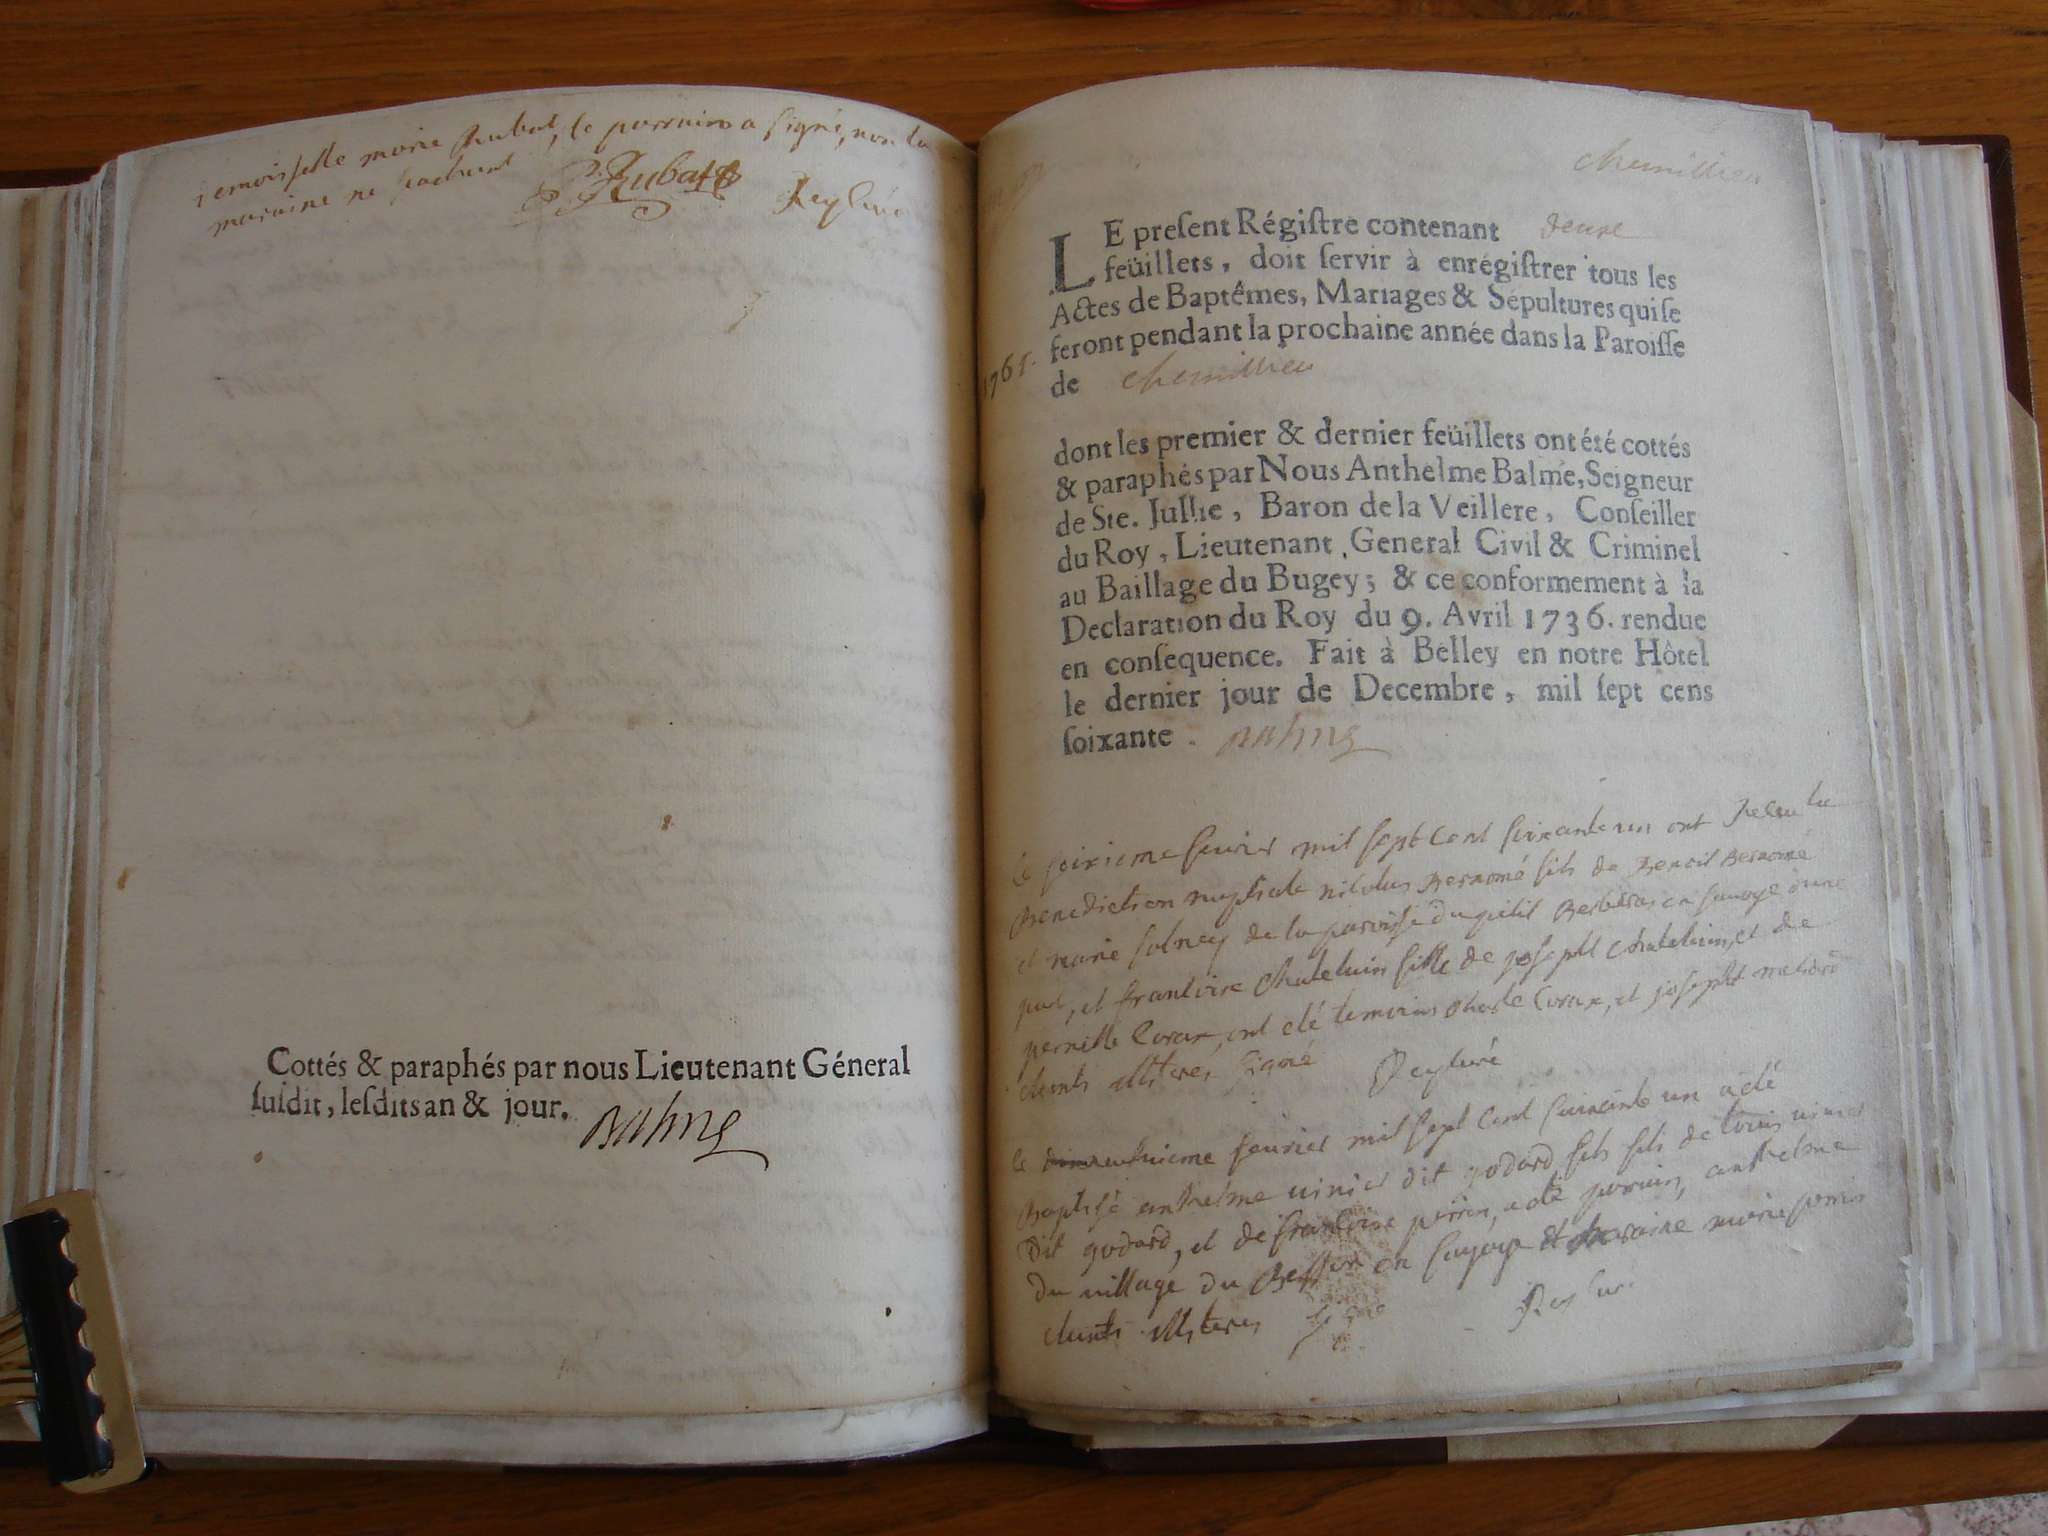 demoiselle marie Rubat, le parrain a signé, non la
maraine ne sachant
Rubat
Rey Curé
Cottés & paraphés par nous Lieutenant Géneral
ſuſdit, leſdits an & jour.
Balme
chemillieu
1761.
LE preſent Régiſtre contenant deux
feüillets, doit ſervir à enrégiſtrer tous les
Actes de Baptêmes, Mariages & Sépultures qui ſe
feront pendant la prochaine année dans la Paroiſſe
de chemillieu
dont les premier & dernier feüillets ont été cottés
& paraphés par Nous Anthelme Balme, Seigneur
de Ste. Jullie, Baron de la Veillere, Conſeiller
du Roy, Lieutenant General Civil & Criminel
au Baillage du Bugey; & ce conformement à la
Declaration du Roy du 9. Avril 1736. rendue
en conſequence. Fait à Belley en notre Hôtel
le dernier jour de Decembre, mil ſept cens
ſoixante. Balme
le seizieme fevrier mil sept cent soixante un ont receu la
Benediction nuptiale nicolas Bernomé fils de Benoit Bernomé
et marie de la paroisse du petit en savoye d'une
part, et françoise Chatelain fille de joseph Chatelain, et de
pernette ont eté temoins et joseph
illiteres signé Rey curé
le fevrier mil sept cent soixante un a eté
Baptisé anthelme vinier dit godard fils de Louis vinier
dit godard, et de françoise perrin, a eté parain, anthelme
du village du en savoye et maraine marie perrin
illiteres signé Rey cur.